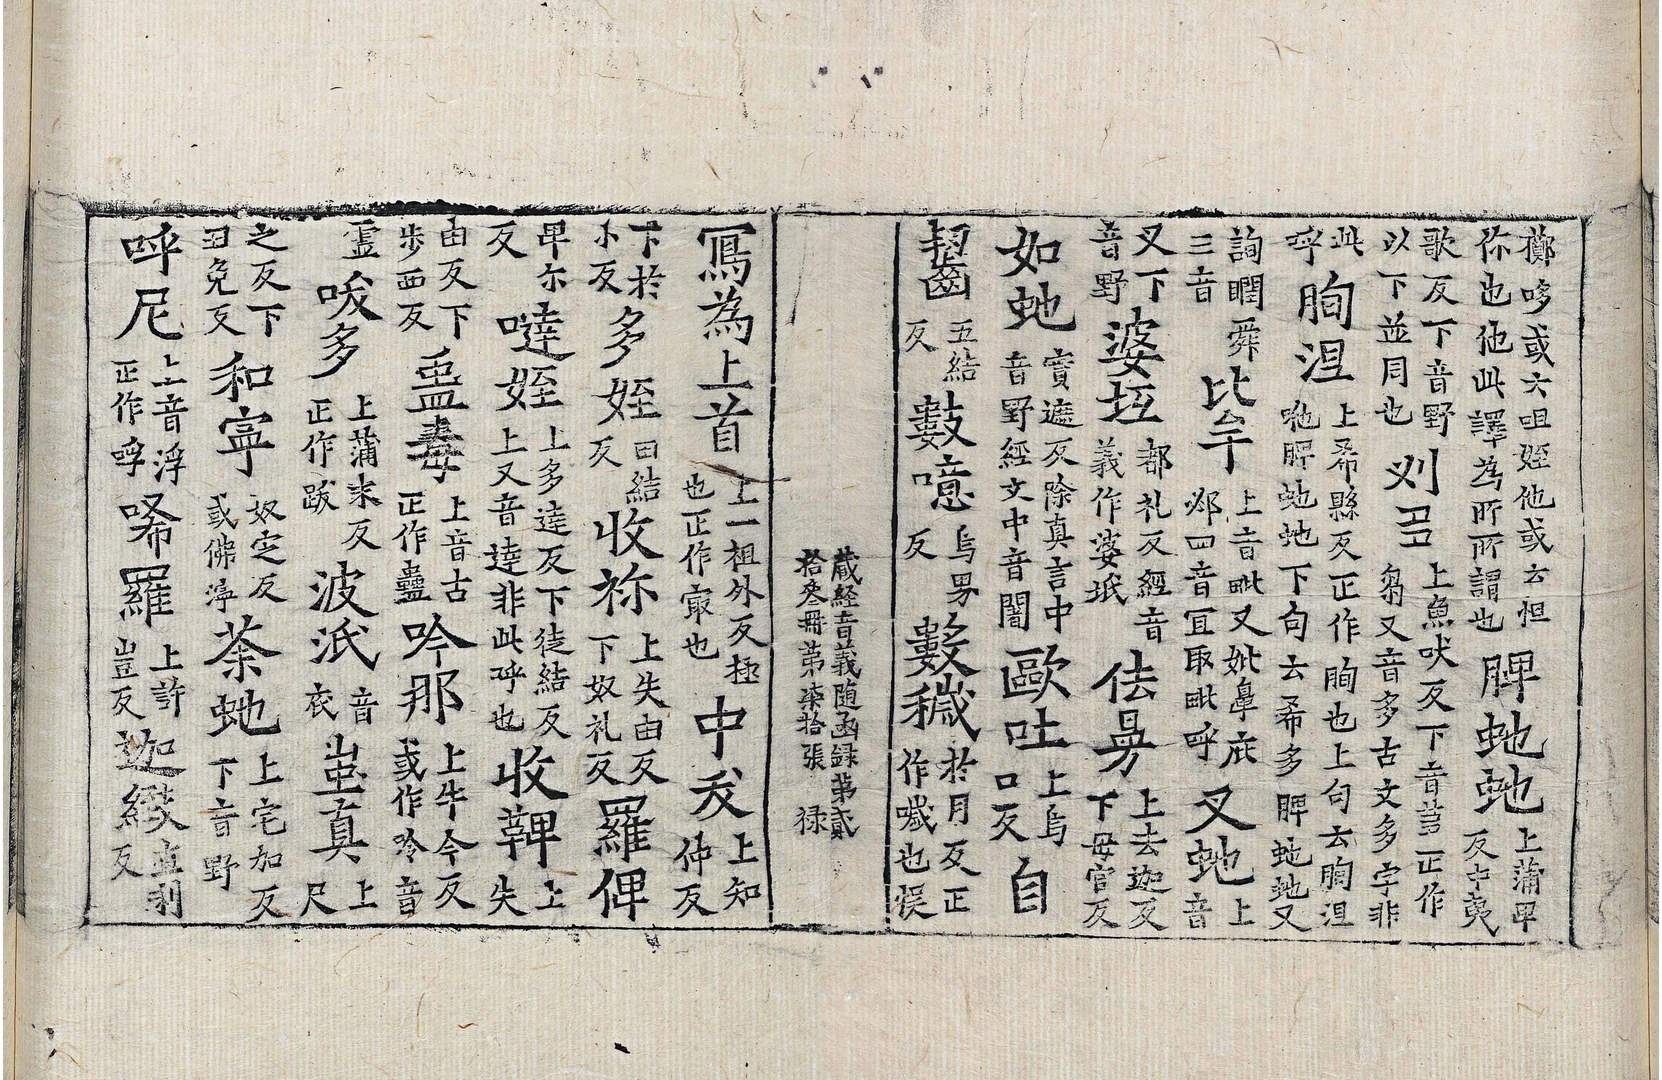 擲哆或云咀姪他或云怛
你也他此譯為所所謂也 脾虵虵 上蒲卑反中夷
歌反下音野 刈 上魚吠反下音 正作
以下並同也 芻又音多古文多字非
此 胊涅 上希縣反正作胊也上句云胊涅
呼 吔脾虵虵下句云希多脾虵虵又
詢瞤舜 比牟 上音毗又妣鼻庇 又虵 上音
三音 邲四音宜取毗呼
叉下 婆坘 都礼反經音 佉㝵 上去迦反
音野 義作婆坻 下毋官反
如虵 實遮反除真言中 歐吐 上烏口反 自
音野經文中音闍
齧齒 五結反 藪噫 烏男反 藪穢 於月反正作噦也悞
藏経音義随函録第貳
拾叄冊第柒拾張 禄
冩為上首 上一祖外反極 中 上知仲反
也正作㝡也
下於小反 多姪 田結反 收祢 上失由反下奴礼反 羅俾
卑尔反 噠姪 上多達反下徒結反 收鞞 上失
上又音達非此呼也
由反下步西反 蛊毒 上音古正作蠱 吟那 上牛今反或作唥音
霊 㕹多 上蒲末反正作跋 波泜 音衣 蚩真 上尺
之反下田免反 和寕 奴定反或佛濘 荼虵 上宅加反下音野
呼尼 上音浮正作哹 唏羅 上許豈反 迦綴 直利反